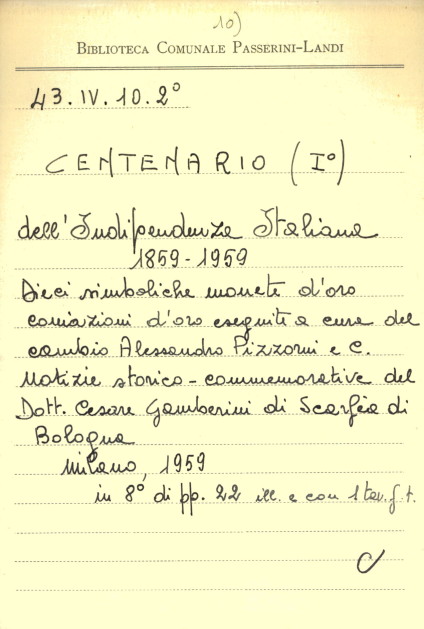 10)
BIBLIOTECA COMUNALE PASSERINI-LANDI
43.IV.10.2°
CENTENARIO (I°)
dell'Indipendenza Italiana
1859-1959
Dieci simboliche monete d'oro
coniazioni d'oro eseguite a cura del
cambio Alessandro Pizzorni e C.
Notizie storico-commemorative del
Dott. Cesare Gamberini di Scarfèa di
Bologna
Milano, 1959
in 8° di pp. 22 ill. e con 1 tav. f.t.